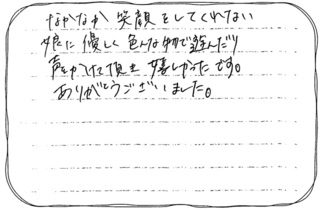 なかなか笑顔をしてくれない
娘に優しく色んな物で遊んだり
声をかけて頂き嬉しかったです。
ありがとうございました。